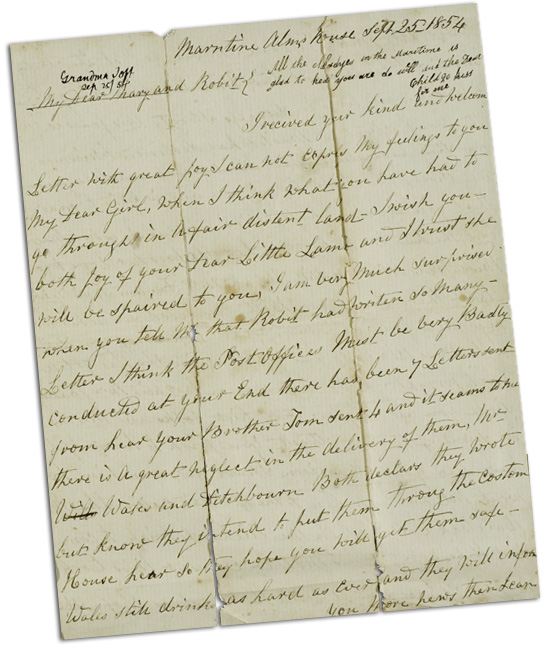 Marntine Alms House Sept 25 1854
Grandma Toft
Sep. 25/54
All the in the Maritime is
glad to hear you are do will and the Dear
Child so kiss
for me
My Dear Mary and Robit
I recived your kind and welcom
Letter with great joy I can not expres My feelings to you
My Dear Girl, when I think what you have had to
go through in a fair distent land - I wish you -
both joy of your Dear Little Lamb and I trust she
will be spaired to you, I am very Much surprised
when you tell Me that Robit had writen so many -
Letter I think the Post Offices Must be very Badly
conducted at your End there has been 7 Letters sent
from hear Your Brother Tom sent 4 and it seams to me
there is a great neglect in the delivery of them, Mr
Wales and Fitchbourn Both declars they wrote
but know they intend to put them throug the Costom
House hear so they hope you will get them safe -
Wales still drinks as hard as ever and they will inform
you More news then I can